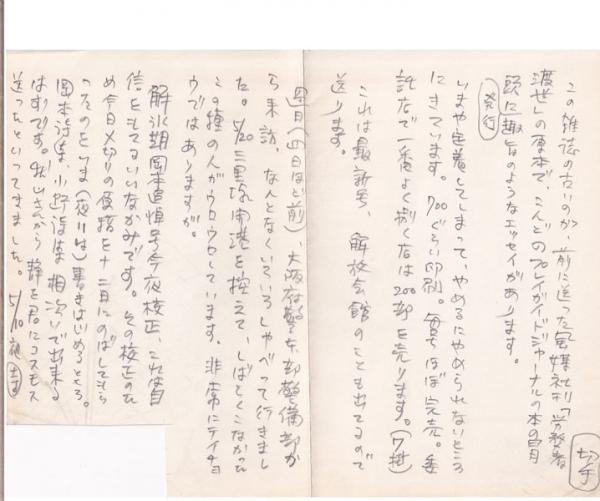 この雑誌の古いのが、前に送った風媒社刊「労務者
渡世」の原本で、こんどのプレイガイドジャーナルの本の自月
頭に趣旨のようなエッセイがあります。
切手
発行
いまや定着してしまって、やめるにやめられないところ
にきています。700ぐらい印刷。毎号ほぼ完売。委
託なで一番よく捌く店は200部を売ります。(7掛)
これは最新号、解放会館のことも出てるので
送ります。
四月(四日ほど前)、大阪府警本部警備部か
ら来訪、なんとなくいろいろしゃべって行きまし
た。5/20三里塚開港を控えて、しばらくこなかった
この種の人がウロウロしています。非常にテイチョ
ウではありますが。
解氷期岡本追悼号今夜校正、これは自
信をもてるいいなかみです。その校正のた
め今日〆切りの原稿を十二日にのばしてもら
ったのをいま(夜11時)書きはじめるところ。
岡本詩集、小野詩集 相次いで出来る
はずです。秋山さんから 静と君にコスモス
送ったといってきました。5/10夜